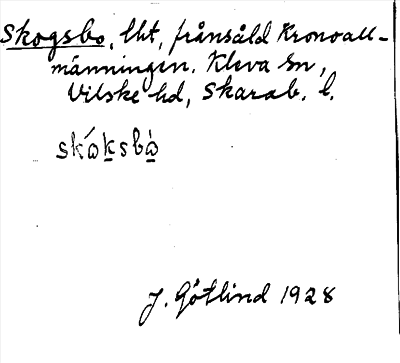 Skogsbo, lht, frånsåld Kronoall-
männingen. Kleva sn,
Vilske hd, Skarab. l.
skó̲k̲sbò̲
J. Götlind 1928